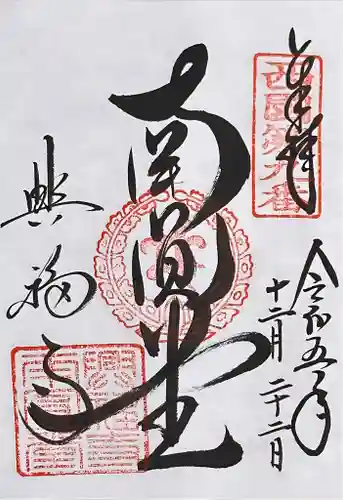 奉拝
西国第九番
令和五年
十二月二十二日
南円堂
興福寺